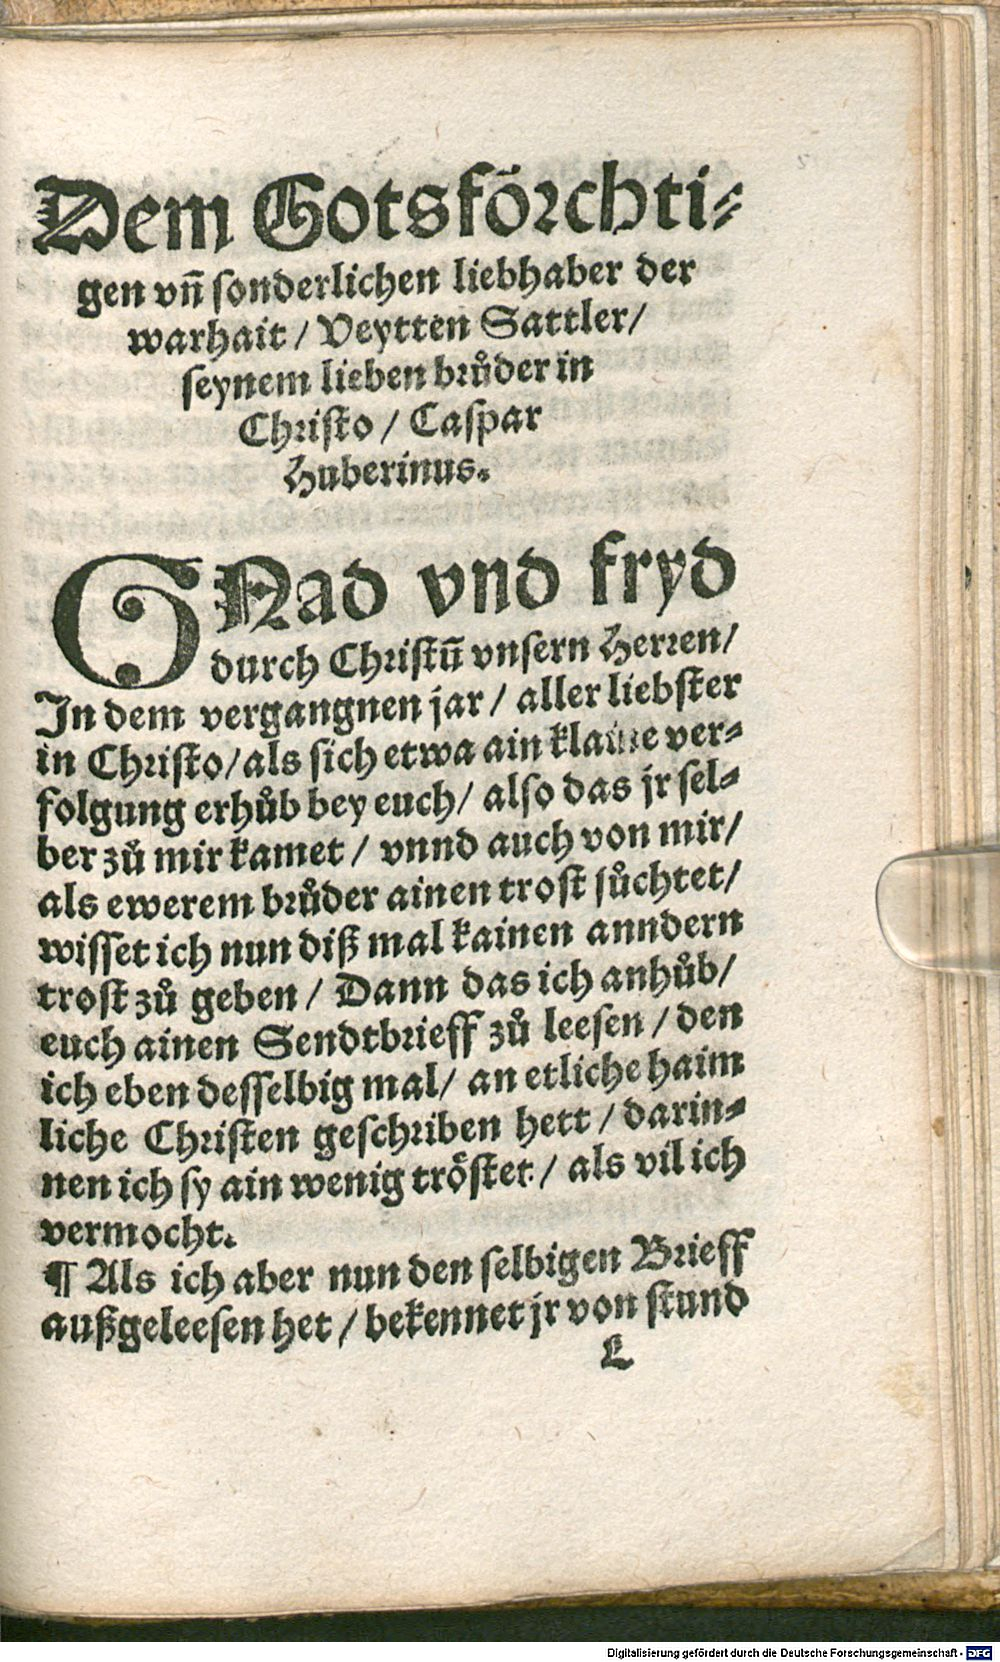 Dem Gotsförchti⸗
gen vn̄ sonderlichen liebhaber der
warhait / Veytten Sattler/
seynem lieben brůder in
Christo / Caspar
Huberinus.
GNad vnd fryd
durch Christū vnsern Herren/
In dem vergangnen jar / aller liebster
in Christo/als sich etwa ain klaine ver⸗
folgung erhůb bey euch/ also das jr sel⸗
ber zů mir kamet / vnnd auch von mir/
als ewerem brůder ainen trost sůchtet/
wisset ich nun diß mal kainen anndern
trost zů geben / Dann das ich anhůb/
euch ainen Sendtbrieff zů leesen / den
ich eben desselbig mal/ an etliche haim
liche Christen geschriben hett / darin⸗
nen ich sy ain wenig tröstet / als vil ich
vermocht.
¶ Als ich aber nun den selbigen Brieff
außgeleesen het / bekennet jr von stund
Digitalisierung gefördert durch die Deutsche Forschungsgemeinschaft - DFG